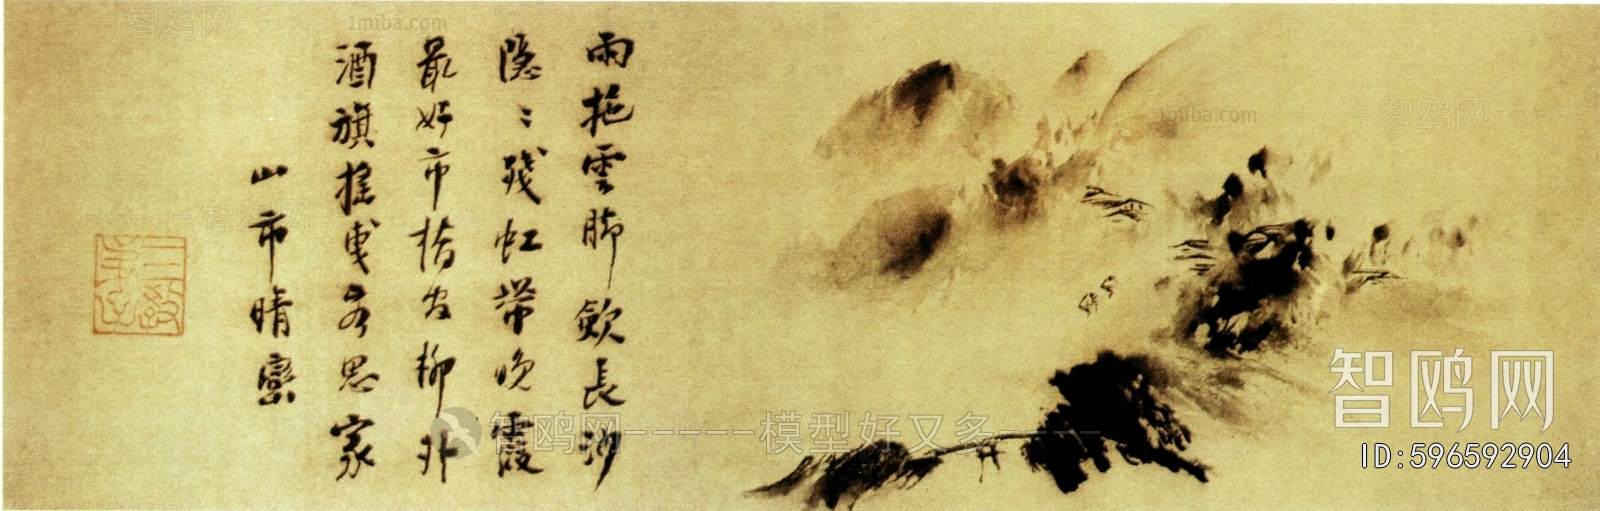 雨拖雲脚斂長沙
隱〻殘虹帶晚霞
最好市橋官柳外
酒旗摇曳客思家
山市晴巒
智鸥网
1miba.com
1miba.com
智鸥网
智鸥网-----模型好又多----
智鸥网
ID:596592904